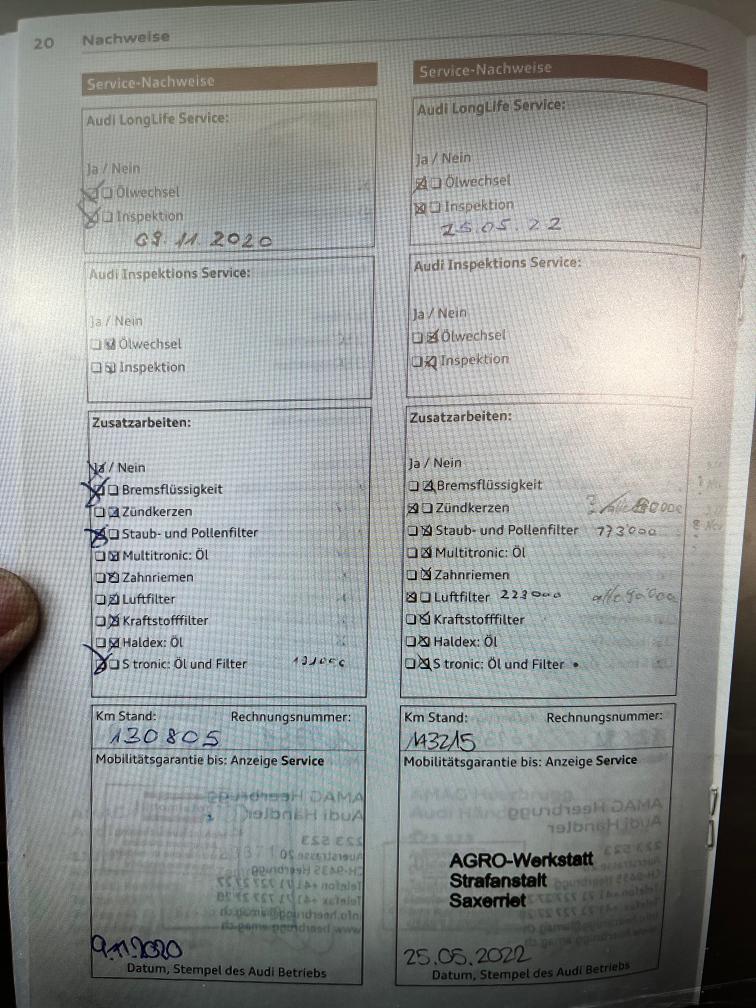 20 Nachweise
Service-Nachweise
Audi LongLife Service:
Ja / Nein
Ölwechsel
Inspektion
09.11.2020
Audi Inspektions Service:
Ja / Nein
Ölwechsel
Inspektion
Zusatzarbeiten:
Ja / Nein
Bremsflüssigkeit
Zündkerzen
Staub- und Pollenfilter
Multitronic: Öl
Zahnriemen
Luftfilter
Kraftstofffilter
Haldex: Öl
S tronic: Öl und Filter
Km Stand: Rechnungsnummer:
130805
Mobilitätsgarantie bis: Anzeige Service
9.11.2020
Datum, Stempel des Audi Betriebs
Service-Nachweise
Audi LongLife Service:
Ja / Nein
Ölwechsel
Inspektion
25.05.22
Audi Inspektions Service:
Ja / Nein
Ölwechsel
Inspektion
Zusatzarbeiten:
Ja / Nein
Bremsflüssigkeit
Zündkerzen
Staub- und Pollenfilter 173'000
Multitronic: Öl
Zahnriemen
Luftfilter 223000 alle 90'000
Kraftstofffilter
Haldex: Öl
S tronic: Öl und Filter
Km Stand: Rechnungsnummer:
143215
Mobilitätsgarantie bis: Anzeige Service
AGRO-Werkstatt
Strafanstalt
Saxerriet
25.05.2022
Datum, Stempel des Audi Betriebs